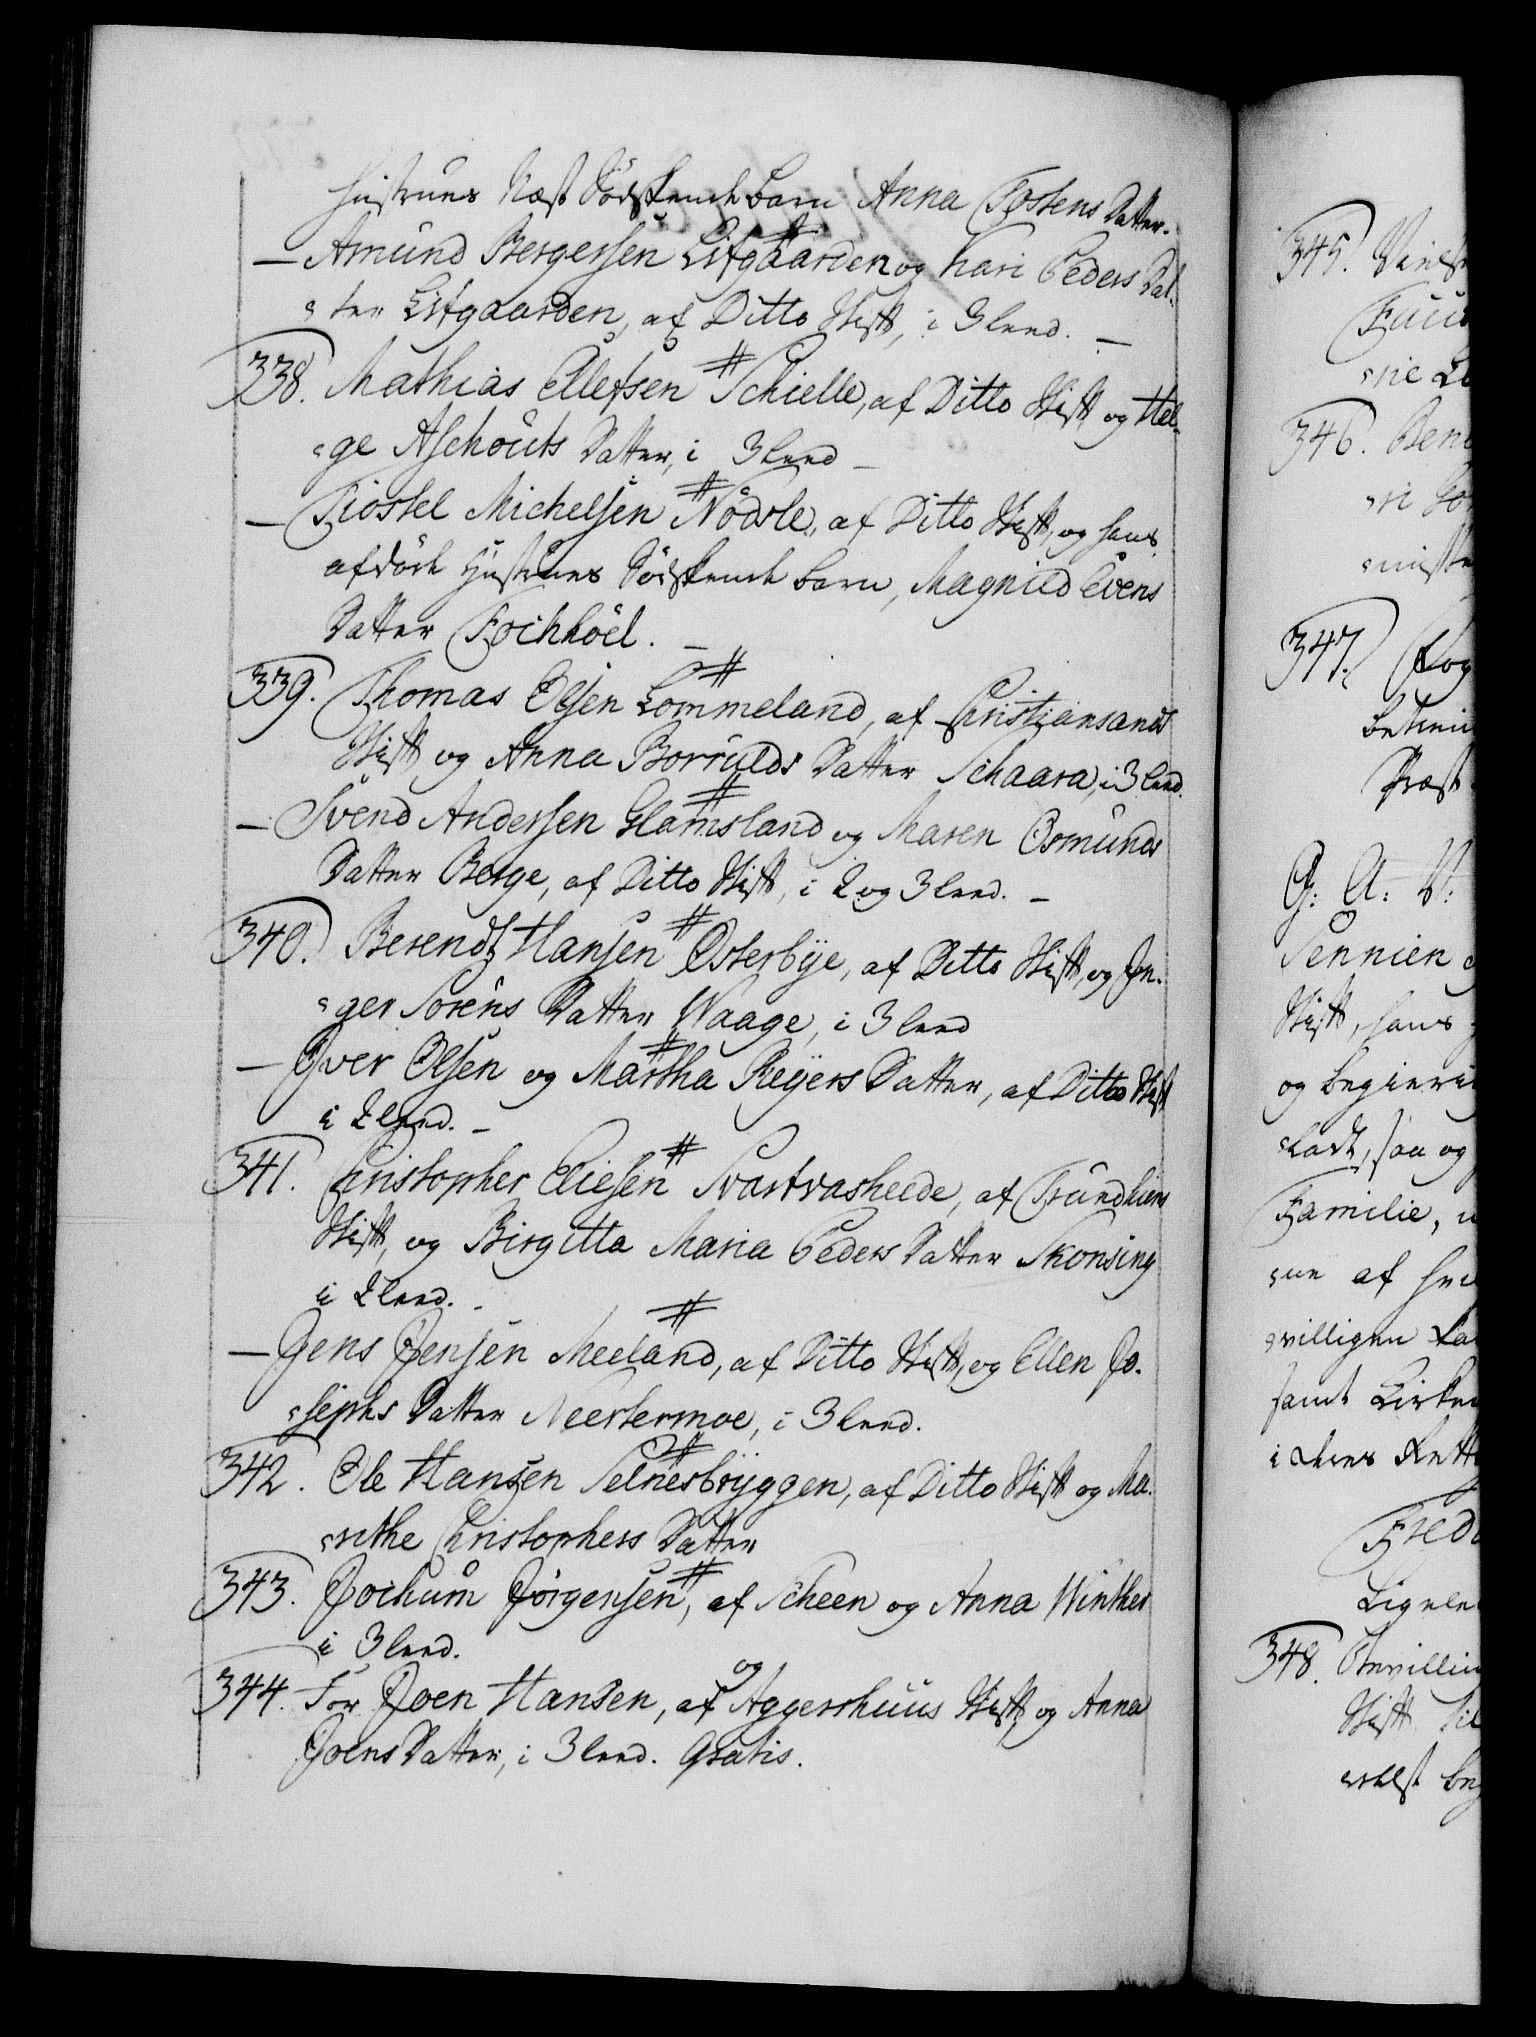 Hustrues Næst Södskende barn Anna Tostens Datter.
— Amund Bergersen Lifgaarden og Kari Peders Dat-
ter Lifgaarden, af Ditto Stift, i 3 leed. —
338. Mathias Ellefsen Schielle, af Ditto Stift og Hel-
ge Aschouts Datter, i 3 leed —
— Tiostel Michelsen Nödsle, af Ditto Stift, og hans
afdöde Hustrues Södskende barn, Magnild Evens
Datter Fochhöel. —
339. Thomas Olsen Lommeland, af Christiansands
Stift og Anna Borrulds Datter Schaara, i 3 leed.
— Svend Andersen Glamsland og Maren Osmunds
Datter Berge, af Ditto Stift, i 2 og 3 leed. —
340. Berendt Hansen Osterbÿe, af Ditto Stift, og In-
ger Sörens Datter Waage, i 3 leed
— Iver Olsen og Martha Reÿers Datter, af Ditto Stift
i 2 leed. —
341. Christopher Eliesen Svartvasheede, af Trundhiems
Stift, og Birgitta Maria Peders Datter Skonsing
i 2 leed. —
— Jens Jensen Meeland, af Ditto Stift, og Ellen Jo-
sephs Datter Neerlermoe, i 3 leed.
342. Ole Hansen Selnesbryggen, af Ditto Stift og Ma-
rithe Christophers Datter
343. Jochum Jörgensen, af Scheen og Anna Winther
i 3 leed.
og
344. For Joen Hansen, af Aggershuus Stift og Anna
Joens Datter, i 3 leed. Gratis.
345.
346.
347.
G: A: V:
Sennien
Stift, hans
og begierig
ladt, saa og
Familie,
af
villigen
samt
i deres
348.
Stift